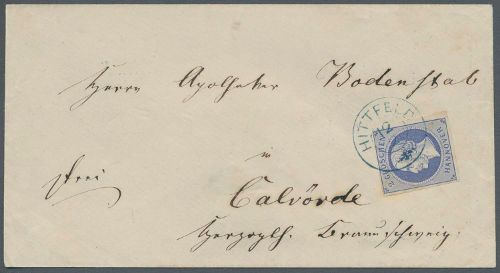 Herrn Apotheker Bodenstab
HITTFELD
12
2 GROSCHEN
HANNOVER
in
frei
Calvörde
Herzogth. Braunschweig.